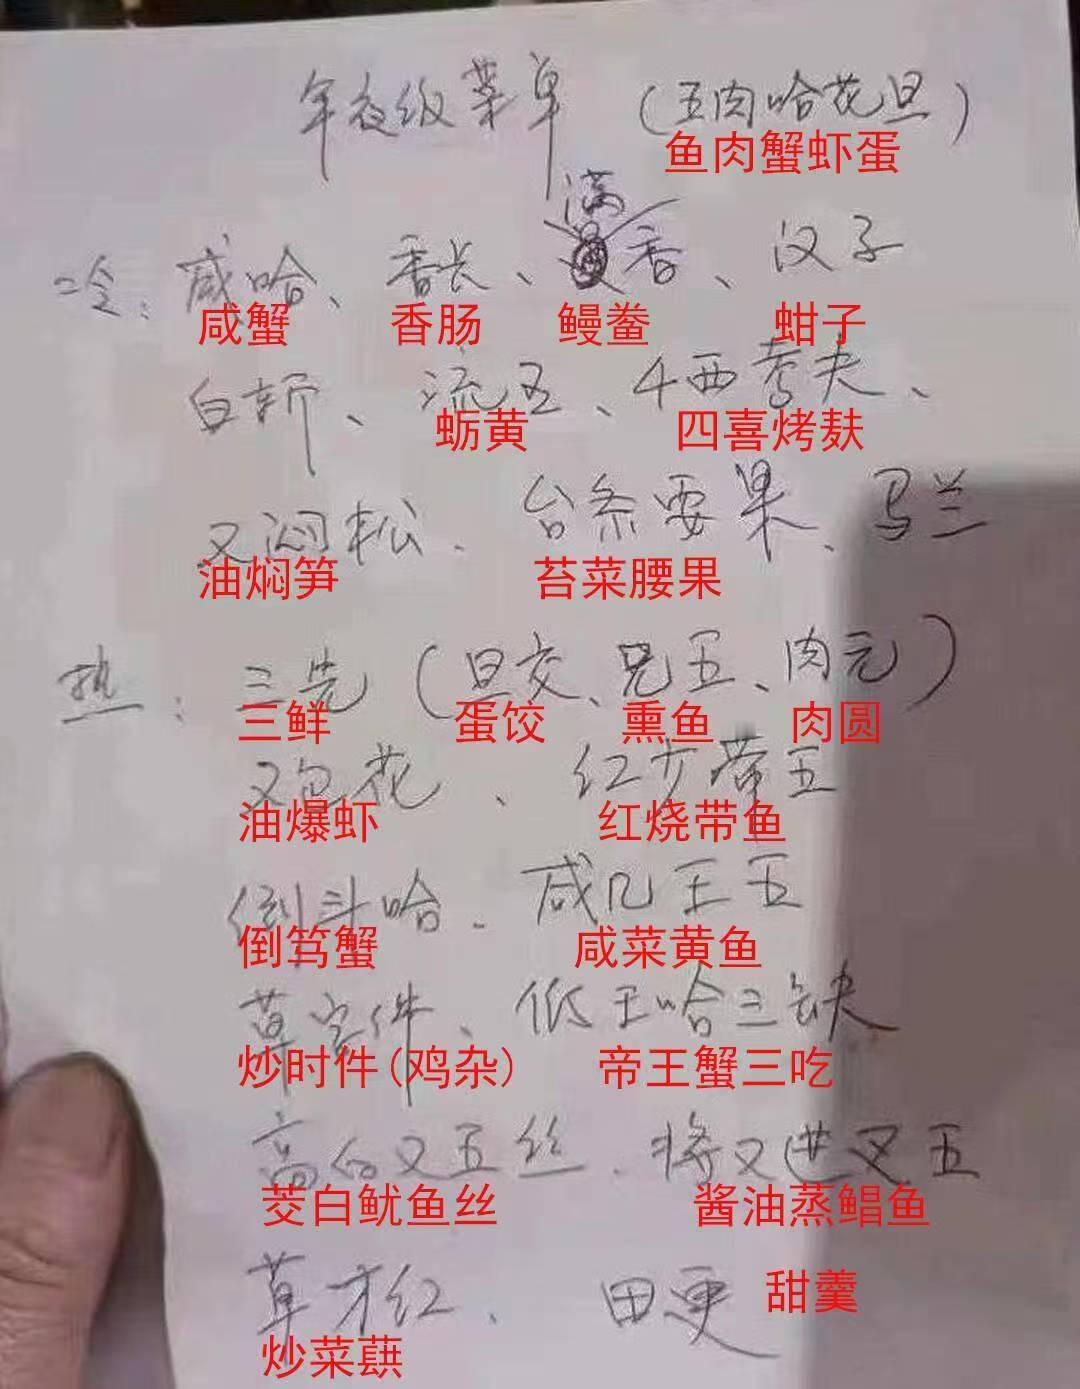 年夜级菜单 (五肉哈花旦)
鱼肉蟹虾蛋
满
冷: 咸哈、香长、香、汉子
咸蟹 香肠 鳗鲞 蚶子
白斩、流王、4西考夫、
蛎黄 四喜烤麸
又闷松、台条要果、马兰
油焖笋 苔菜腰果
热: 三先(旦交、兄五、肉元)
三鲜 蛋饺 熏鱼 肉圆
又包花、红少带五
油爆虾 红烧带鱼
倒斗哈、咸几王五
倒笃蟹 咸菜黄鱼
草字件、低王哈三缺
炒时件(鸡杂) 帝王蟹三吃
高白又五丝、将又进叉五
茭白鱿鱼丝 酱油蒸鲳鱼
草才红、田更
甜羹
炒菜蕻